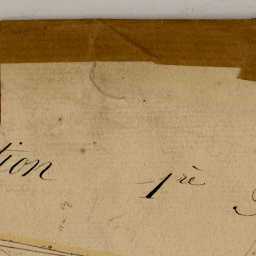 tion 1re